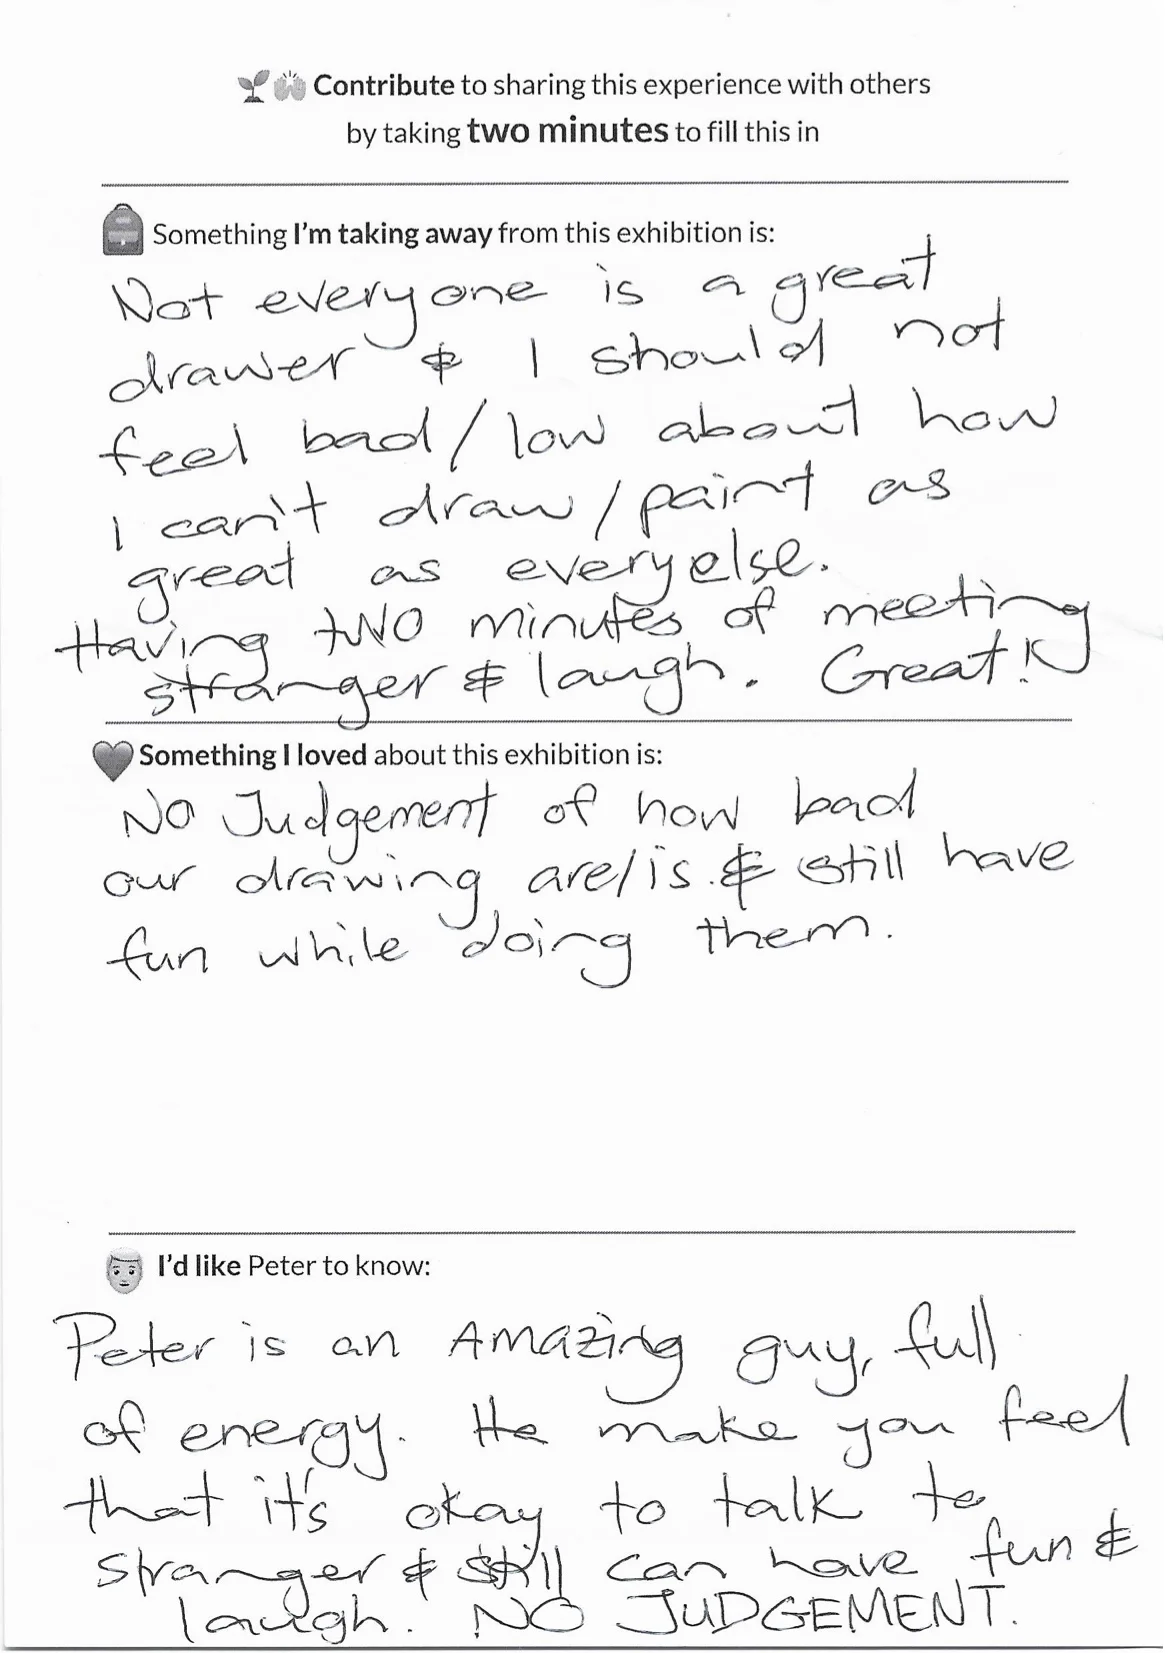 Contribute to sharing this experience with others
by taking two minutes to fill this in
Something I'm taking away from this exhibition is:
Not everyone is a great
drawer & I should not
feel bad/low about how
I can't draw/paint as
great as everyelse.
Having two minutes of meeting
stranger & laugh. Great!
Something I loved about this exhibition is:
No Judgement of how bad
our drawing are/is & still have
fun while doing them.
I'd like Peter to know:
Peter is an Amazing guy, full
of energy. He make you feel
that it's okay to talk to
stranger & still can have fun &
laugh. NO JUDGEMENT.